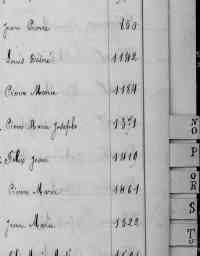 Jean Pierre 150
Louis Désiré 1142
Pierre Marie 1184
Pierre Marie Joseph 1321
Felix Jean 1419
Pierre Marie 1461
Jean Marie 1322
NO
P
QR
S
T